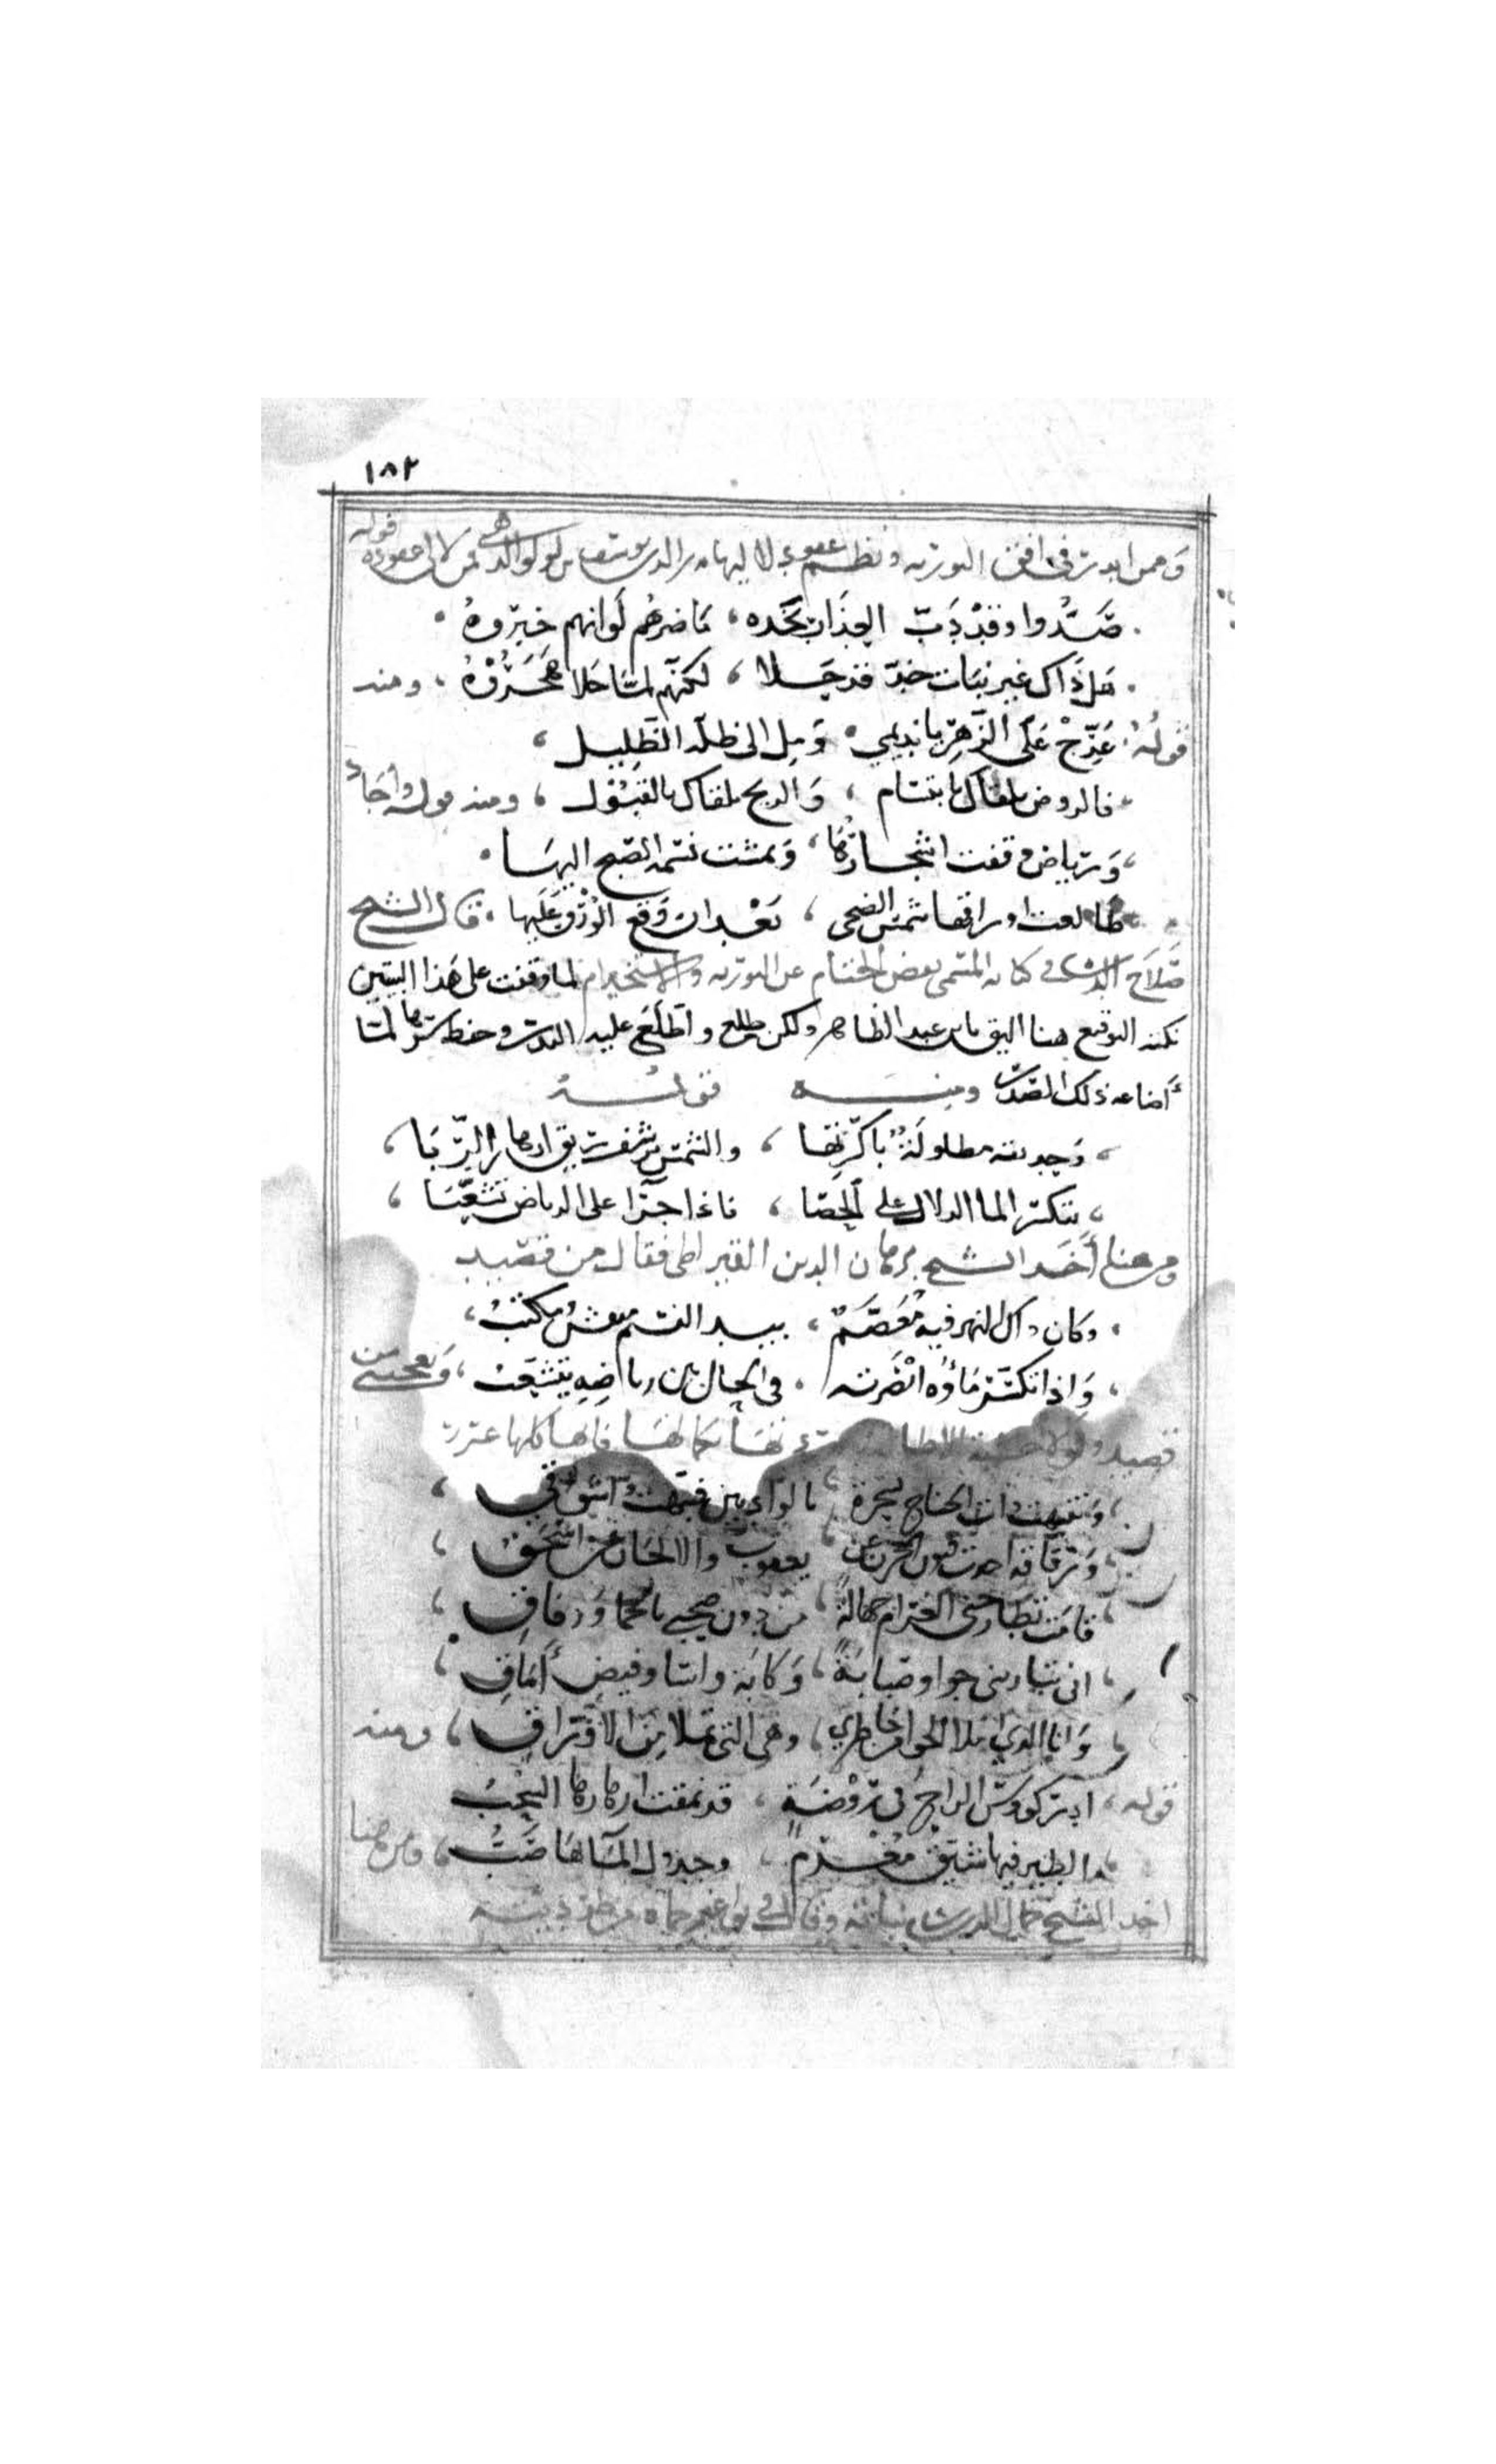 ١٨٢
وممن ابدر في افق التوريه ونظم عقود لاليها بدر الدين يوسف بن لولو الذهبي فمن لالي عقوده قوله
صدوا وقد دب العذار بخده ، ما ضرهم لو انهم خبروه
هل ذاك غير نبات خد قد حلا ، لكنهم لما حلا هجروه ، ومنه
قوله عرج على الزهر يا نديمي ، ومل الى ظله الظليل ،
فالروض يلقاك بابتسام ، والريح تلقاك بالقبول ، ومنه قوله واجاد
ورياض وقفت اشجارها ، وتمشت نسمة الصبح اليها
طالعت اوراقها شمس الضحى ، بعد ان وقع الورق عليها ، قال الشيخ
صلاح الدين في كتابه المسمى بفض الختام عن التوريه والاستخدام لما وقفت على هذا البيتين
نكتة التوقيع هنا اليق بابن عبد الظاهر ولكن طلع واطلع عليه البدر وحفظ سرها لما
أضاعه ذلك الصدر ومنه قوله
وحديقة مطلولة باكرتها ، والشمس ترشف ريق ازهار الربا ،
يتكسر الما الزلال على الحصا ، فاذا جرا على الرياض تشعبا ،
ومن هنا أخذ الشيخ برهان الدين القيراطي فقال من قصيد
وكان ذاك النهر فيه معصم ، بيد النسيم منقش مكتب ،
واذا تكسر ماؤه ابصرته ، في الحال بين رياضه يتشعب ، ويعجبني من
قصيد ولولا خشية الاطالة نها بكمالها فانها كلها غرر
وتنبهت ذات الجناح بسحرة ، بالواديين فنبهت اشواقي ،
ورقا قد اخذت فنون الحزن عن ، يعقوب والالحان عن اسحق ،
قامت تطارحني الغرام جهالة ، من دون صحبي بالحما ورفاقي ،
انى تباريني جوا وصبابة ، وكابة واسا وفيض أماقي ،
وانا الذي املا الجوا من خاطري ، وهي التي تملا من الاوراق ، ومنه
قوله ، ادر كووس الراح في روضة ، قد نمقت ازهارها السحب
الطير فيها شيق مغرم ، وجدول المآ بها صب ، ومن هنا
اخذ الشيخ جمال الدين بن نباته وقال في نواعير حماه